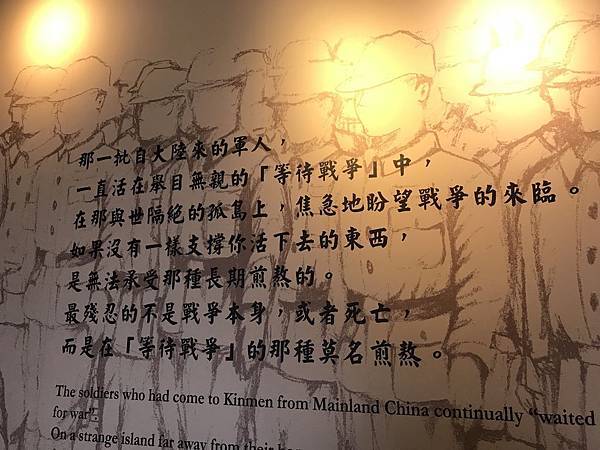 那一批自大陸來的軍人，
一直活在舉目無親的「等待戰爭」中，
在那與世隔絕的孤島上，焦急地盼望戰爭的來臨。
如果沒有一樣支撐你活下去的東西，
是無法承受那種長期煎熬的。
最殘忍的不是戰爭本身，或者死亡，
而是在「等待戰爭」的那種莫名煎熬。
The soldiers who had come to Kinmen from Mainland China continually “waited
for war”.
On a strange island far away from their